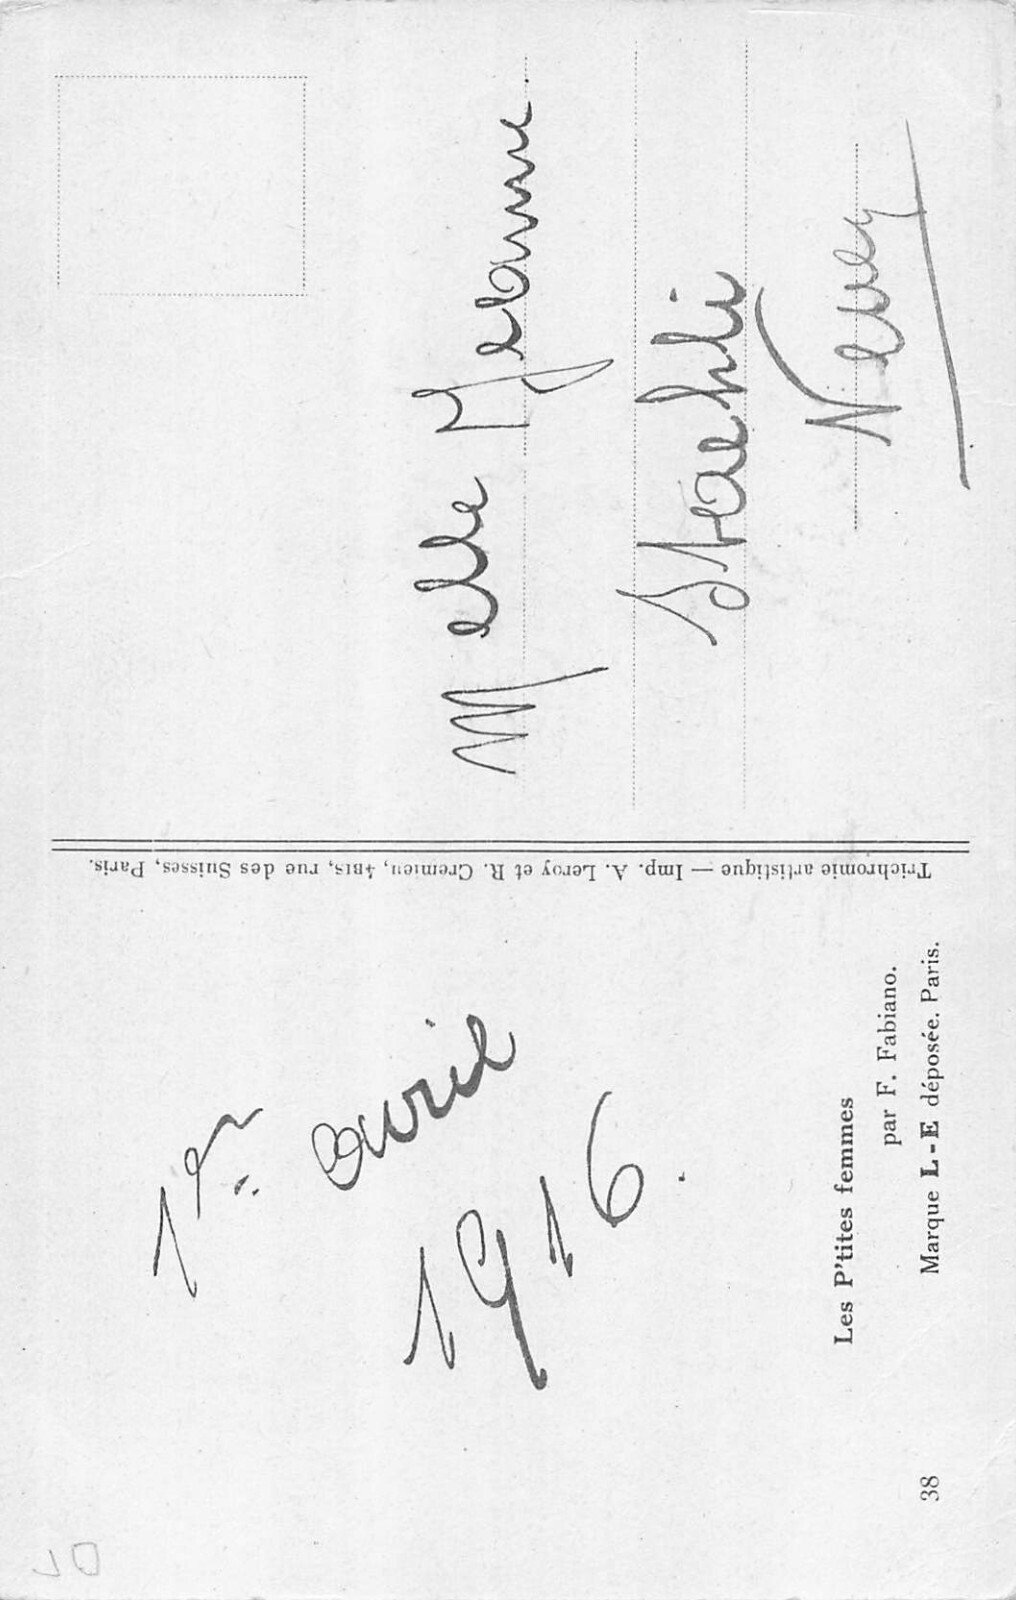 1er avril
1916.
Les P'tites femmes
par F. Fabiano.
38 Marque L-E déposée. Paris.
Trichromie artistique — Imp. A. Leroy et R. Cremieu, 4BIS, rue des Suisses, Paris.
Melle Jeanne
Staehli
DL